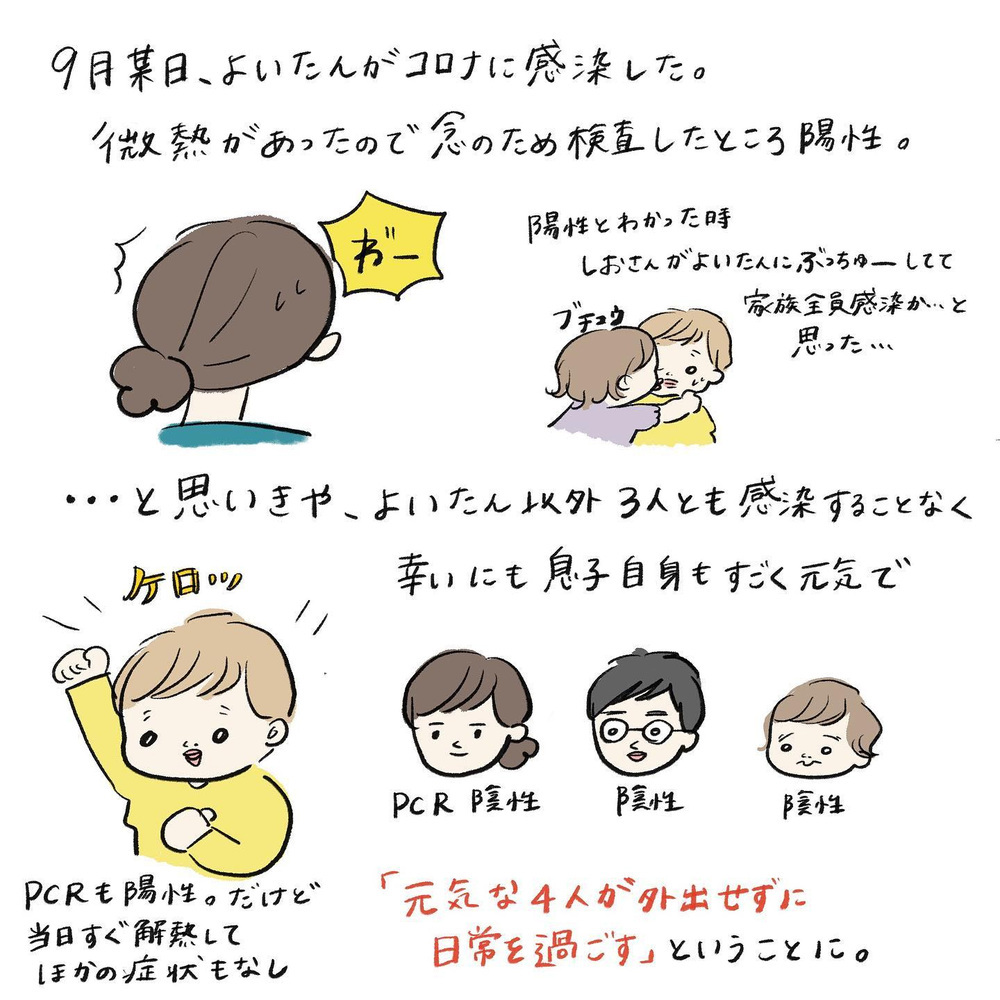 9月某日、よいたんがコロナに感染した。
微熱があったので念のため検査したところ陽性。
ガーー
陽性とわかった時
しおさんがよいたんにぶっちゅーしてて
家族全員感染か…と
思った…
ブチュウ
…と思いきや、よいたん以外3人とも感染することなく
幸いにも息子自身もすごく元気で
ケロッ
PCR 陰性
陰性
陰性
PCRも陽性。だけど
当日すぐ解熱して
ほかの症状もなし
「元気な4人が外出せずに
日常を過ごす」ということに。